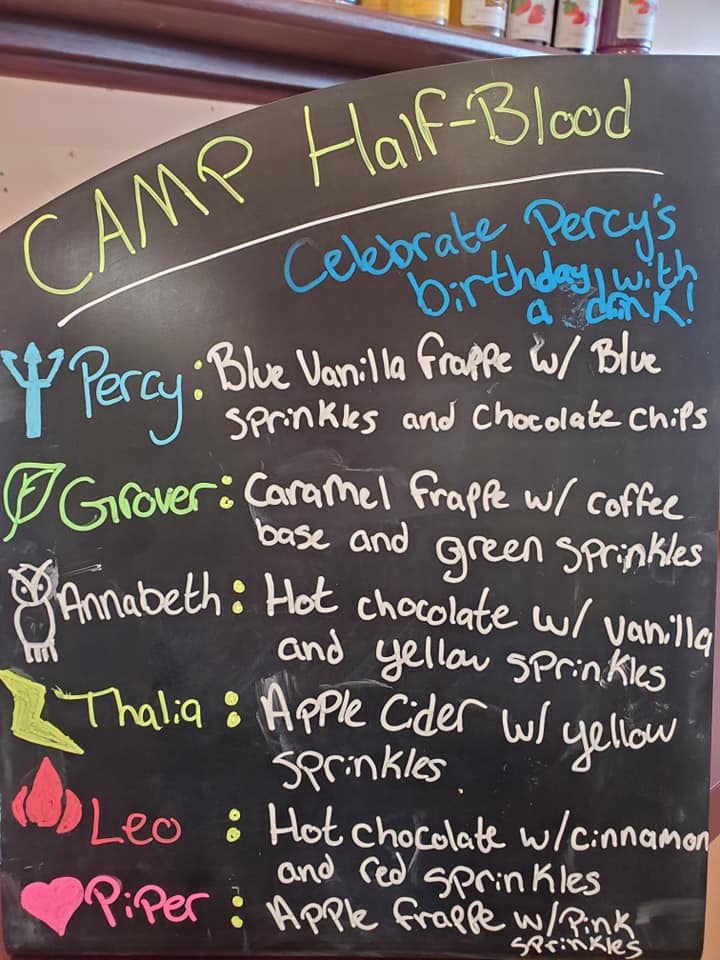 CAMP Half-Blood
Celebrate Percy's
birthday with
a drink!
Percy: Blue Vanilla frappe w/ Blue
sprinkles and chocolate chips
Grover: Caramel frappe w/ coffee
base and green sprinkles
Annabeth: Hot chocolate w/ vanilla
and yellow sprinkles
Thalia: Apple Cider w/ yellow
sprinkles
Leo: Hot chocolate w/cinnamon
and red sprinkles
Piper: Apple frappe w/Pink
sprinkles